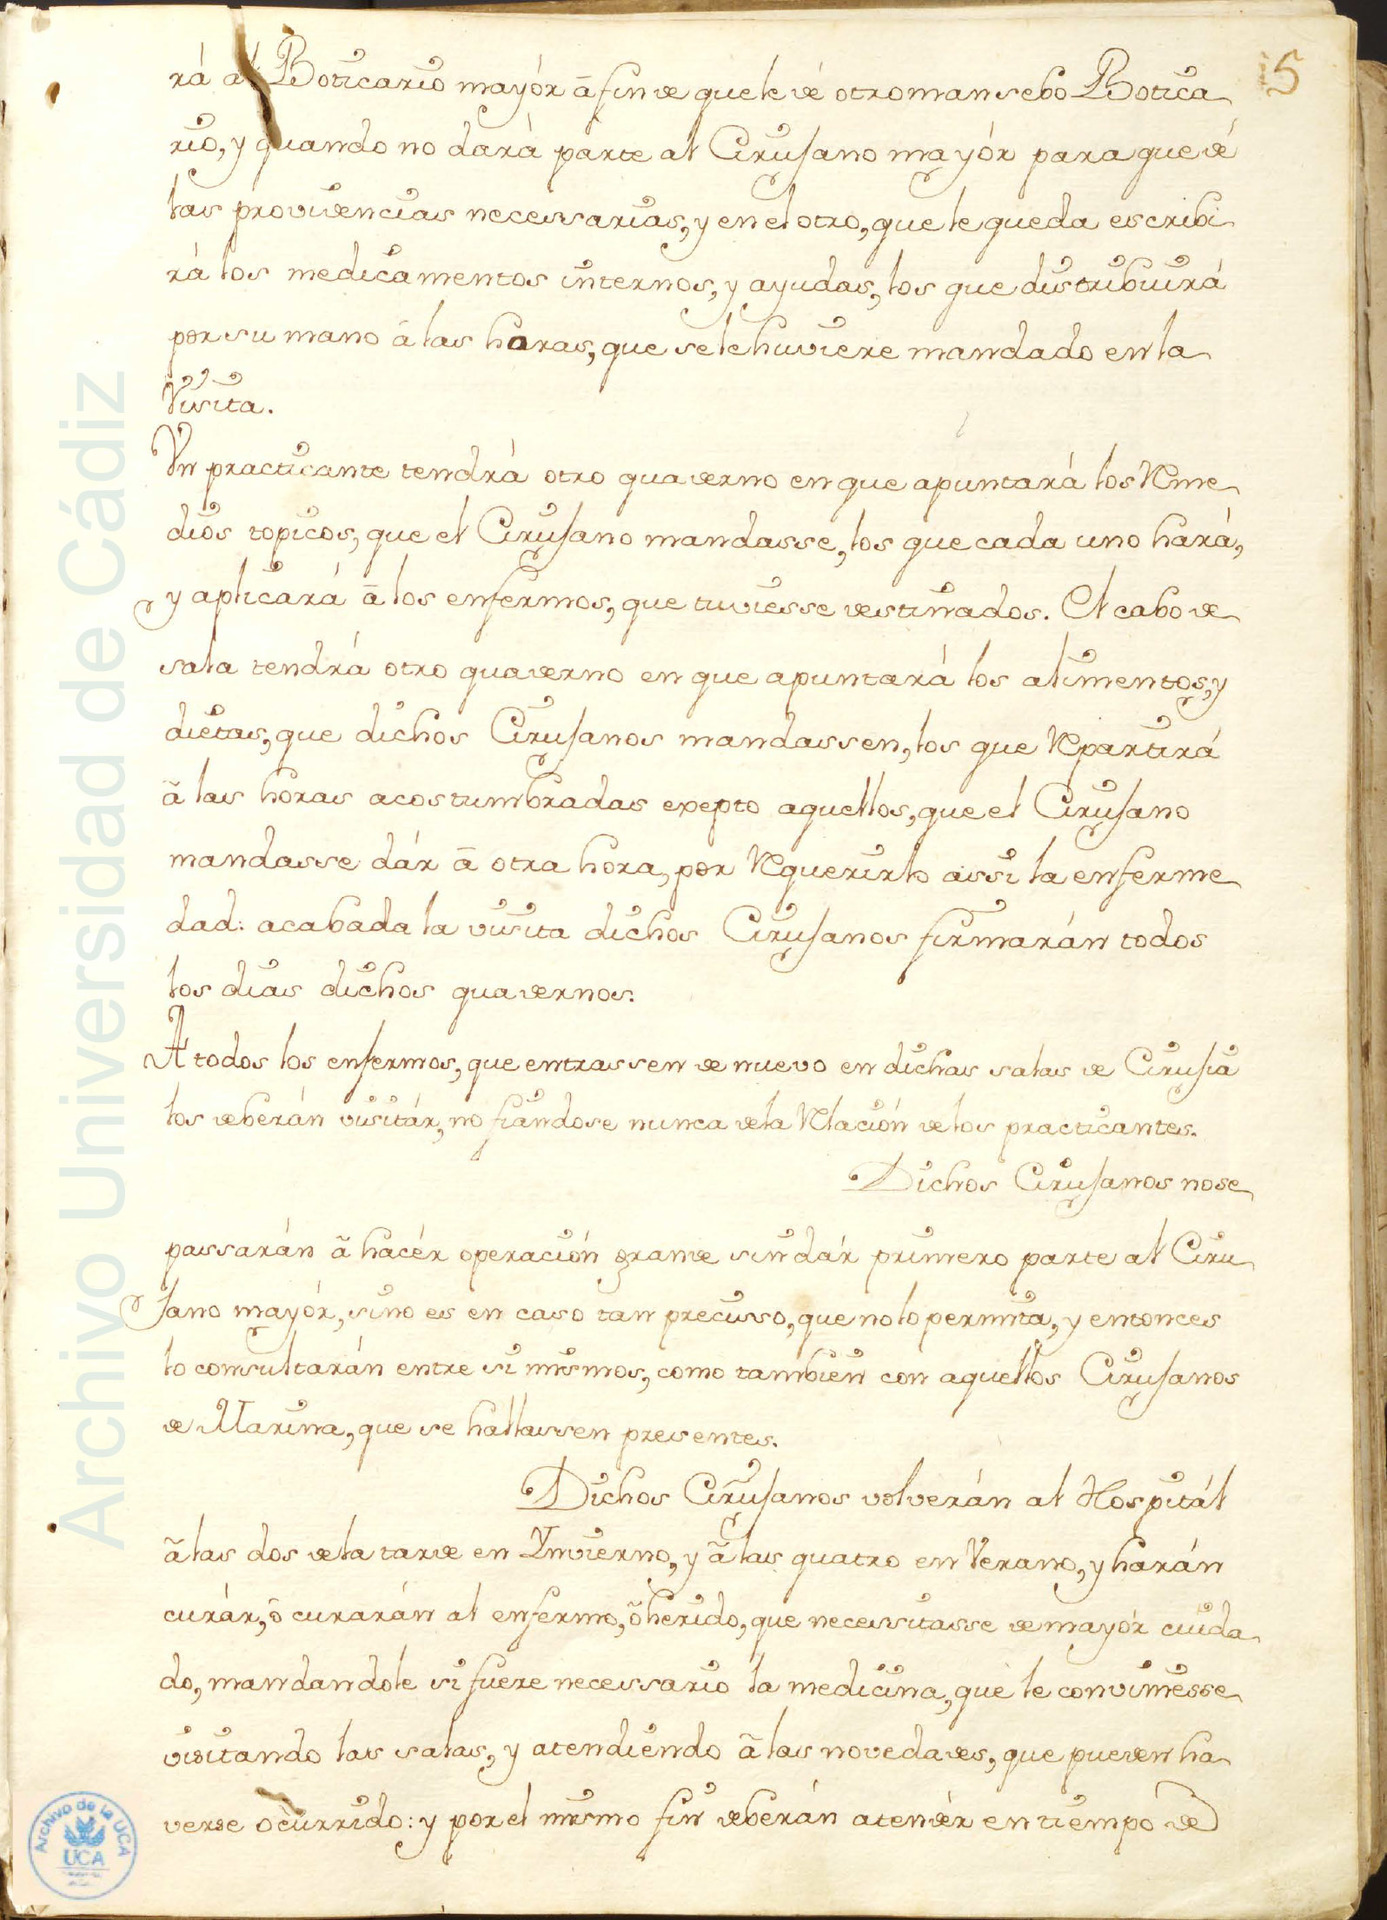 5
rá al Boticario mayór ā fin de que le dé otro mansebo Botica
rio, y quando no dará parte al Cirujano mayór para que dé
las providencias necessarias, y en el otro, que le queda escribi
rá los medicamentos internos, y ayudas, los que distribuirá
por su mano á las horas, que se le huviere mandado en la
Visita.
Vn practicante tendrá otro quaderno en que apuntará los Reme
dios topicos, que el Cirujano mandasse, los que cada uno hará,
y aplicará ā los enfermos, que tuviesse destinados. El cabo de
sala tendrá otro quaderno en que apuntará los alimentos, y
dietas, que dichos Cirujanos mandassen, los que Repartirá
ā las horas acostumbradas exepto aquellos, que el Cirujano
mandasse dár ā otra hora, por Requerirlo assi la enferme
dad: acabada la visita dichos Cirujanos firmarán todos
los dias dichos quadernos.
A todos los enfermos, que entrassen de nuevo en dichas salas de Cirujia
los deberán visitár, no fiandose nunca de la Relación de los practicantes.
Dichos Cirujanos no se
passarán ā hacér operación grande sin dár primero parte al Ciru
jano mayór, sino es en caso tan preciso, que no lo permita, y entonces
lo consultarán entre si mismos, como tambien con aquellos Cirujanos
de Marina, que se hallassen presentes.
Dichos Cirujanos volverán al Hospitál
ā las dos de la tarde en Ynvierno, y ā las quatro en Verano, y harán
curár, ō curarán al enfermo, ō herido, que necessitasse de mayór cuida
do, mandandole si fuere necessario la medicina, que le conviniesse
visitando las salas, y atendiendo ā las novedades, que pueden ha
verse ocurrido: y por el mismo fin deberán atendér en tiempo de
Archivo Universidad de Cádiz
Archivo de la UCA
UCA